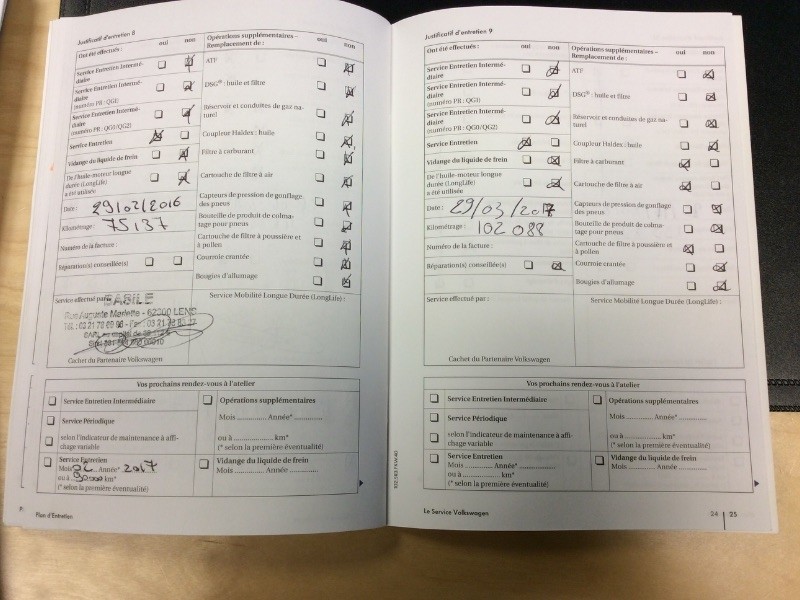 Justificatif d'entretien 8
Ont été effectués : oui non
Service Entretien Intermé-
diaire
Service Entretien Intermé-
diaire
(numéro PR : QG1)
Service Entretien Intermé-
diaire
(numéro PR : QG0/QG2)
Service Entretien
Vidange du liquide de frein
De l'huile-moteur longue
durée (LongLife)
a été utilisée
Date : 29/02/2016
Kilométrage : 75137
Numéro de la facture :
Réparation(s) conseillée(s)
Opérations supplémentaires –
Remplacement de : oui non
ATF
DSG® : huile et filtre
Réservoir et conduites de gaz na-
turel
Coupleur Haldex : huile
Filtre à carburant
Cartouche de filtre à air
Capteurs de pression de gonflage
des pneus
Bouteille de produit de colma-
tage pour pneus
Cartouche de filtre à poussière et
à pollen
Courroie crantée
Bougies d'allumage
Service effectué par :
Rue Auguste Mariette - 62300 LENS
Cachet du Partenaire Volkswagen
Service Mobilité Longue Durée (LongLife) :
Vos prochains rendez-vous à l'atelier
Service Entretien Intermédiaire
Service Périodique
selon l'indicateur de maintenance à affi-
chage variable
Service Entretien
Mois Année* 2017
ou à 90000 km*
(* selon la première éventualité)
Opérations supplémentaires
Mois .............. Année* ..............
ou à .................. km*
(* selon la première éventualité)
Vidange du liquide de frein
Mois .............. Année ..............
Plan d'Entretien
Justificatif d'entretien 9
Ont été effectués : oui non
Service Entretien Intermé-
diaire
Service Entretien Intermé-
diaire
(numéro PR : QG1)
Service Entretien Intermé-
diaire
(numéro PR : QG0/QG2)
Service Entretien
Vidange du liquide de frein
De l'huile-moteur longue
durée (LongLife)
a été utilisée
Date : 29/03/2017
Kilométrage : 102 088
Numéro de la facture :
Réparation(s) conseillée(s)
Opérations supplémentaires –
Remplacement de : oui non
ATF
DSG® : huile et filtre
Réservoir et conduites de gaz na-
turel
Coupleur Haldex : huile
Filtre à carburant
Cartouche de filtre à air
Capteurs de pression de gonflage
des pneus
Bouteille de produit de colma-
tage pour pneus
Cartouche de filtre à poussière et
à pollen
Courroie crantée
Bougies d'allumage
Service effectué par :
Cachet du Partenaire Volkswagen
Service Mobilité Longue Durée (LongLife) :
Vos prochains rendez-vous à l'atelier
Service Entretien Intermédiaire
Service Périodique
selon l'indicateur de maintenance à affi-
chage variable
Service Entretien
Mois .............. Année* ..............
ou à .................. km*
(* selon la première éventualité)
Opérations supplémentaires
Mois .............. Année* ..............
ou à .................. km*
(* selon la première éventualité)
Vidange du liquide de frein
Mois .............. Année ..............
Le Service Volkswagen
24 | 25